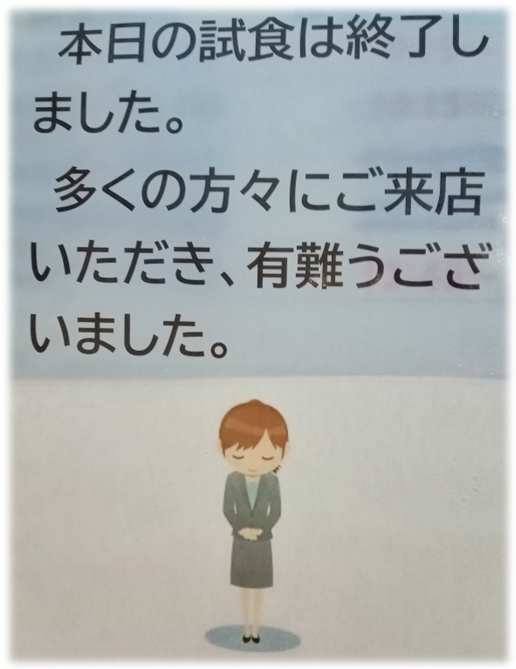 本日の試食は終了し
ました。
多くの方々にご来店
いただき、有難うござ
いました。